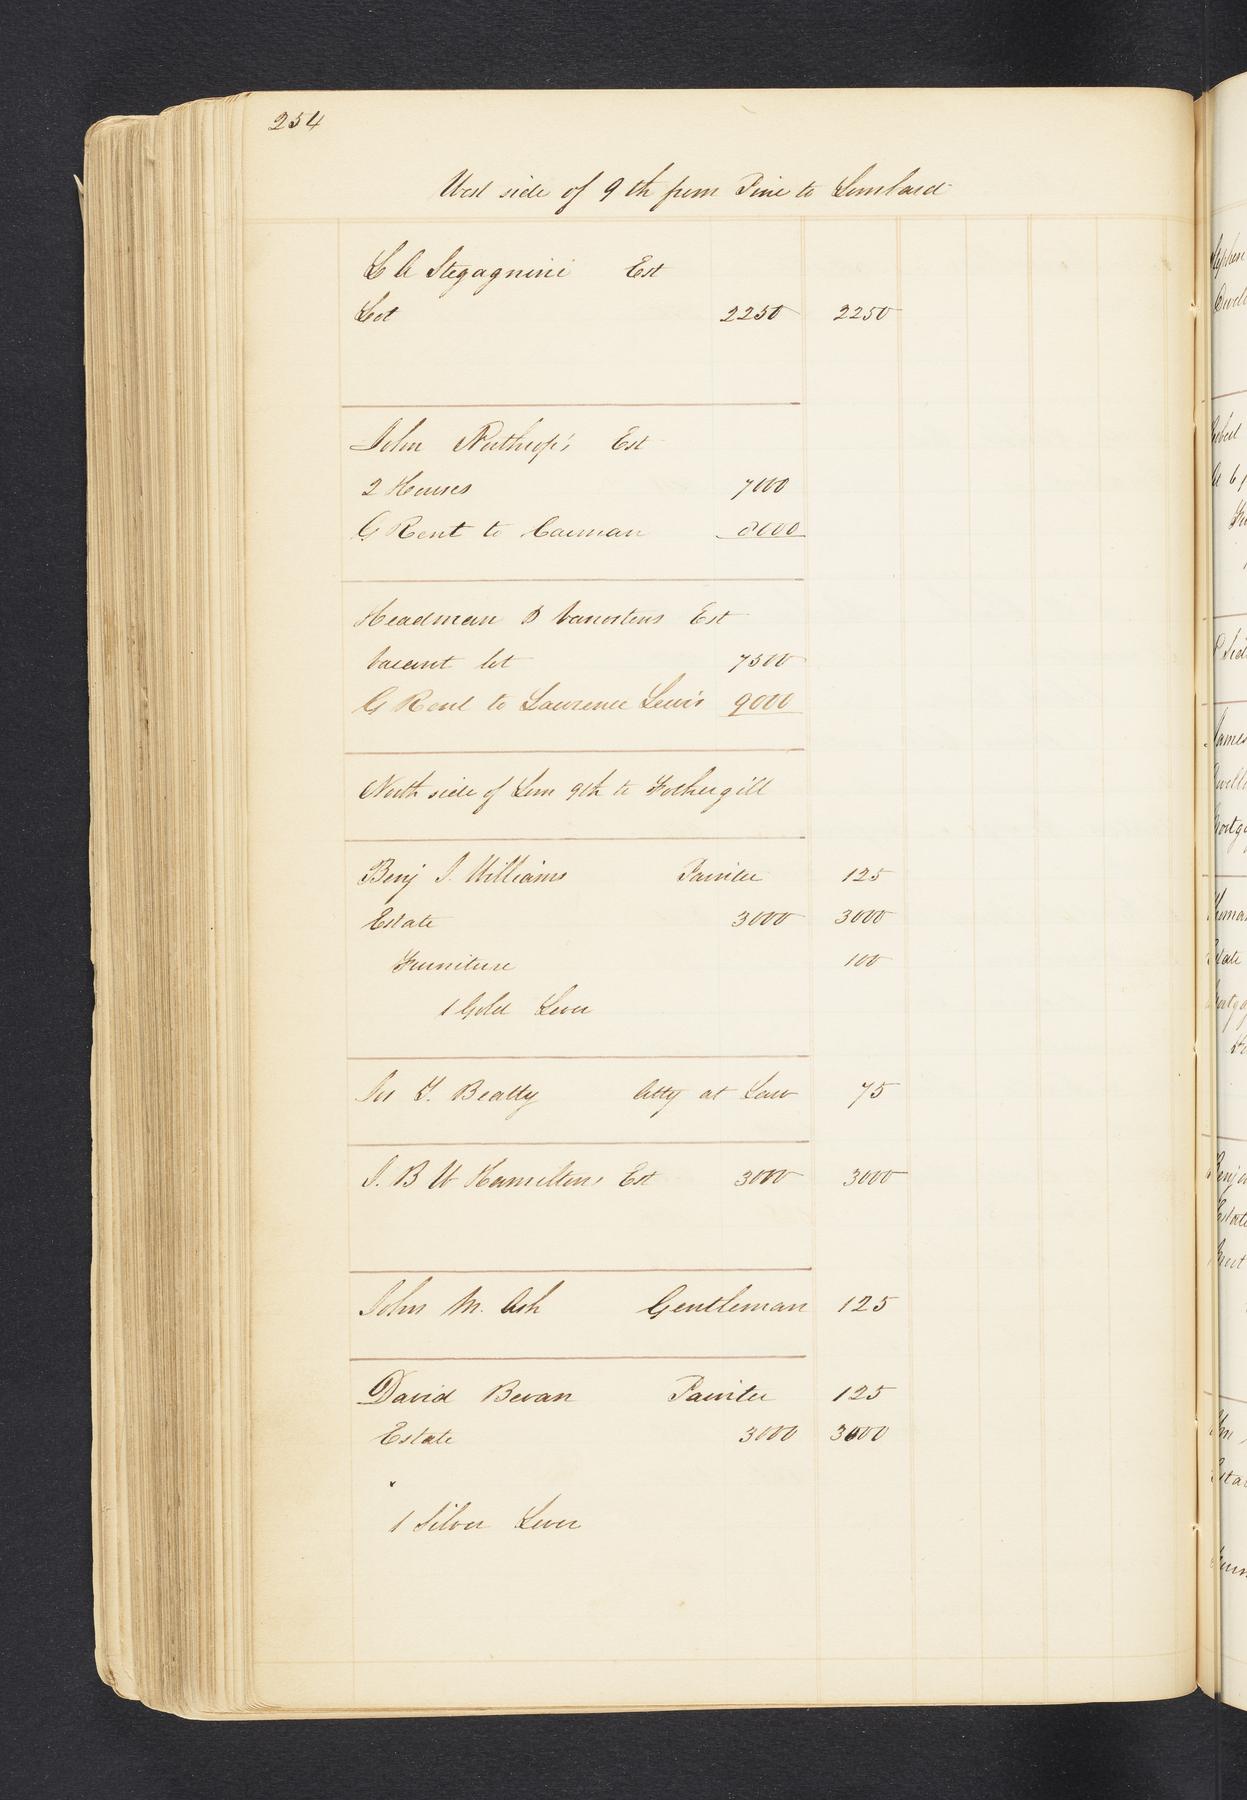 254
West side of 9th from Pine to Lombard
L A Stegagnini Est
Lot 2250 2250
John Northrop's Est
2 Houses 7000
G Rent to Carman 8000
Headman & Vanostens Est
Vacant lot 7500
G Rent to Lawrence Lewis 9000
North side of Lom 9th to Fothergill
Benj J. Williams Painter 125
Estate 3000 3000
Furniture 100
1 Gold Lever
Beatty Atty at Law 75
J. B W Hamiltons Est 3000 3000
John M. Ash Gentleman 125
David Bevan Painter 125
Estate 3000 3000
"
1 Silver Lever